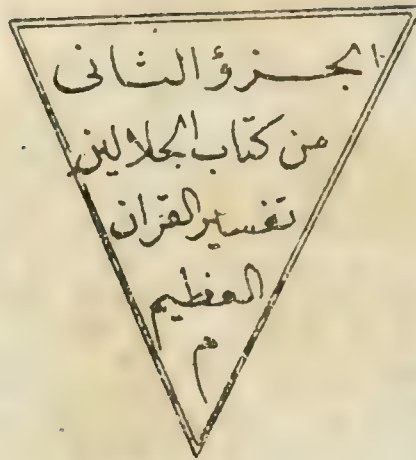 الجزؤ الثانى
من كتاب الجلالين
تفسير القران
العظيم
م